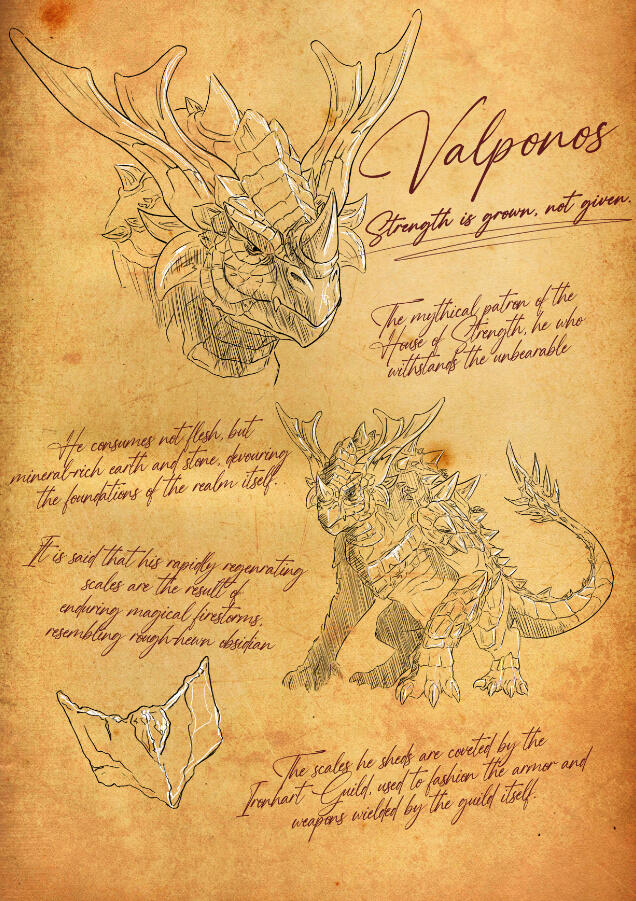 Valponos
Strength is grown, not given.
The mythical patron of the
House of Strength, he who
withstands the unbearable
He consumes not flesh, but
mineral-rich earth and stone, devouring
the foundations of the realm itself.
It is said that his rapidly regenrating
scales are the result of
enduring magical firestorms,
resembling rough-hewn obsidian
The scales he sheds are coveted by the
Ironhart Guild, used to fashion the armor and
weapons wielded by the guild itself.